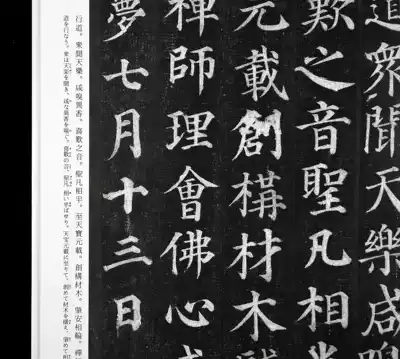 道衆聞天樂咸
歎之音聖凡相半
元載創構材木肇
禪師理會佛心感
夢七月十三日
行道。衆聞天樂。咸嗅異香。喜歎之音。聖凡相半。至天寶元載。創構材木。肇安相輪。禪
道を行なう。衆は天楽を聞き、咸な異香を嗅ぐ。喜歎の音、聖凡相い半ばせり。天宝元載に至りて、創めて材木を構え、肇めて相